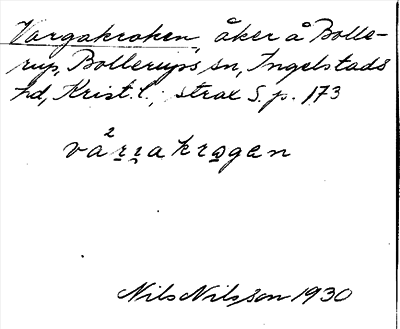 Vargakroken, åker å Bolle-
rup, Bollerups sn, Ingelstads
hd, Krist. l., strax S. p. 173
2
vårrakrogen
Nils Nilsson 1930